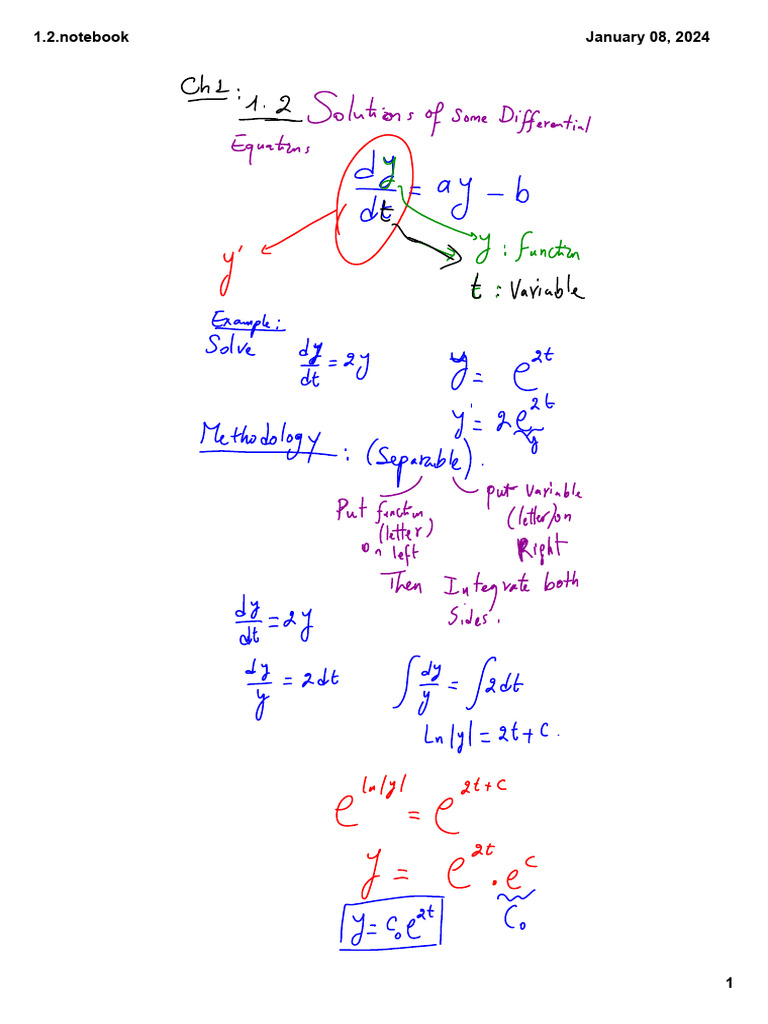 1.2.notebook January 08, 2024
Ch1:
1.2 Solutions of Some Differential
Equations
dy/dt = ay - b
y'
y: Function
t: Variable
Example:
Solve dy/dt = 2y
y = e^{2t}
y' = 2e^{2t}
y
Methodology: (Separable).
Put function (letter) on left
put variable (letter) on Right
Then Integrate both
Sides.
dy/dt = 2y
dy/y = 2dt
∫ dy/y = ∫ 2dt
Ln|y| = 2t + C.
e^{ln|y|} = e^{2t+C}
y = e^{2t} . e^C
C₀
y = C₀e^{2t}
1